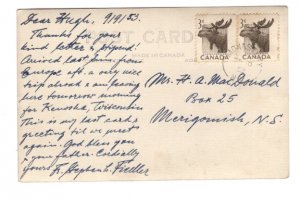 Dear Hugh, 9/9/53.
Thanks for your
kind letter &
Arrived last from
Europe aft. a very nice
trip abroad & am leaving
here tomorrow morning
for Kenosha, Wisconsin
This is my last card &
greeting til we meet
again. God bless you
& your father. Cordially
yours Fr. Stephan L. Fiedler
POST CARD
MADE IN CANADA
3¢ 3¢
CANADA CANADA
Mr. H. A. MacDonald
Box 25
Merigomish, N.S